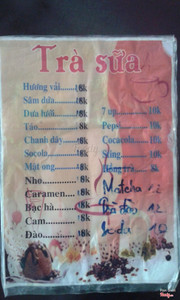 Trà sữa
Hương vải.....8k
Sâm dứa.......8k
Dưa lưới......8k
Táo...........8k
Chanh dây.....8k
Socola........8k
Mật ong.......8k
Nho...........8k
Caramen.......8k
Bạc hà........8k
Cam...........8k
Đào...........8k
7 up..........10k
Pepsi.........10k
Cocacola......10k
Sting.........10k
Hồng trà
Matcha 12
Trà đào 12